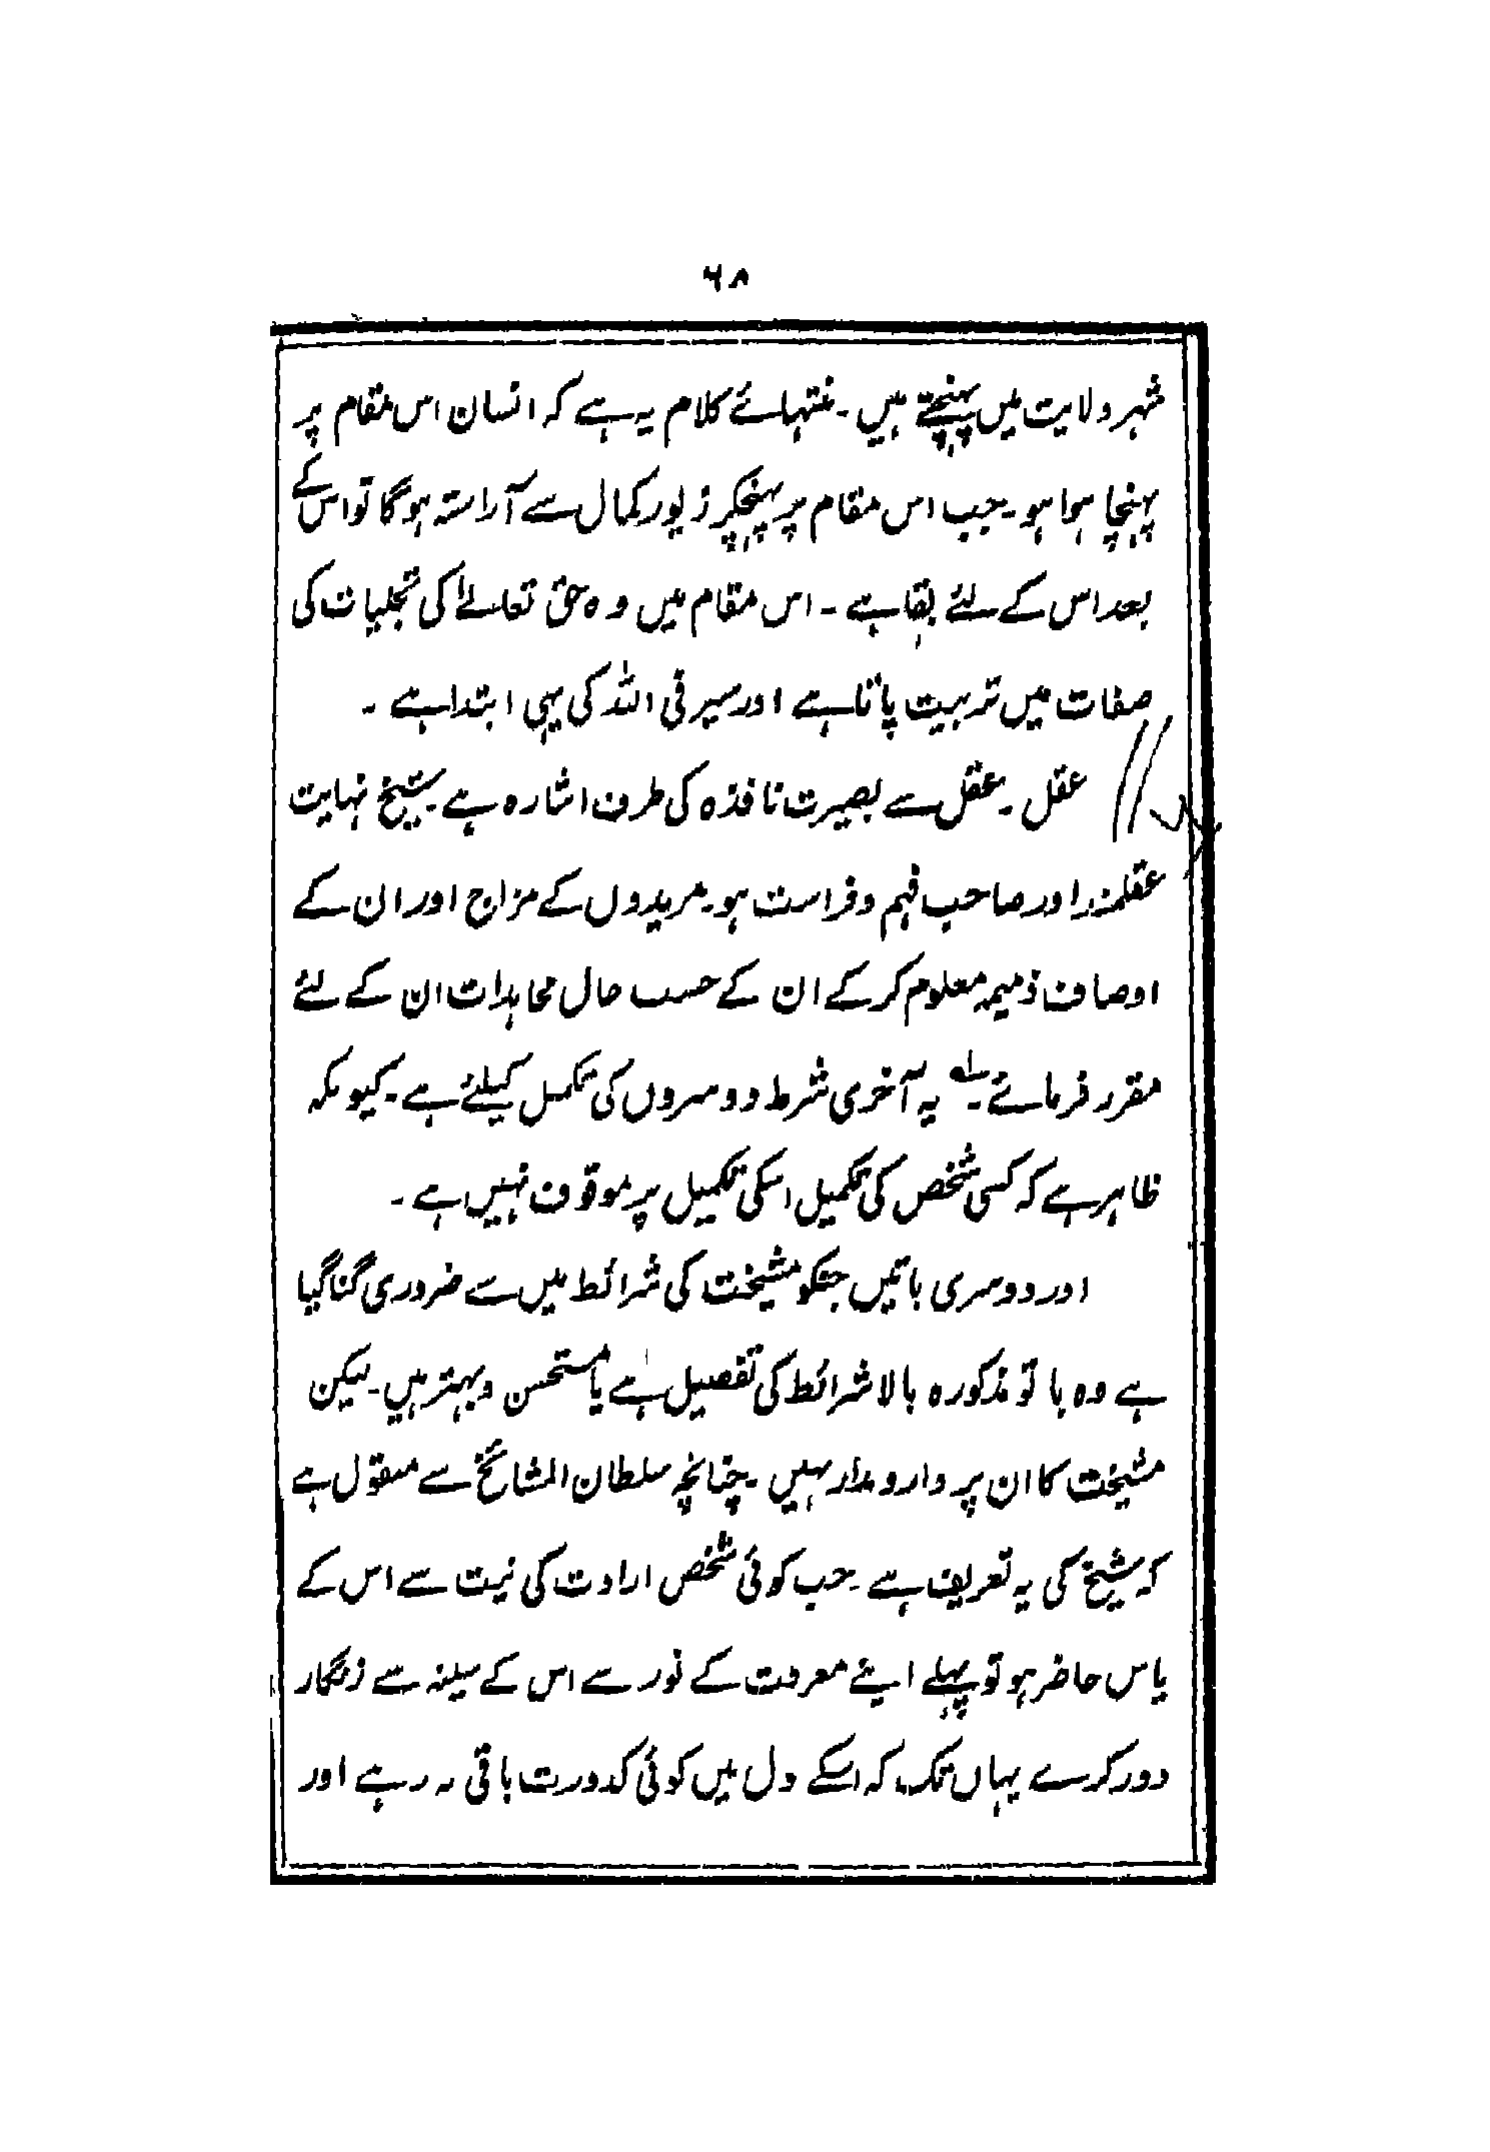 ۶۸
شہر ولایت میں پہنچتے ہیں ۔ منتہائے کلام یہ ہے کہ انسان اس مقام پر
پہنچا ہوا ہو۔ جب اس مقام پر پہنچکر زیور کمال سے آراستہ ہوگا تو اس کے
بعد اس کے لئے بقا ہے ۔ اس مقام میں وہ حق تعالےٰ کی تجلیات کی
صفات میں تربیت پاتا ہے اور سیر فی اللہ کی یہی ابتدا ہے ۔
عقل ۔ عقل سے بصیرت نافذہ کی طرف اشارہ ہے ۔ شیخ نہایت
عقلمند اور صاحب فہم و فراست ہو۔ مریدوں کے مزاج اور ان کے
اوصاف ذمیمہ معلوم کر کے ان کے حسب حال مجاہدات ان کے لئے
مقرر فرمائے ۔ یہ آخری شرط دوسروں کی تکمیل کیلئے ہے ۔ کیونکہ
ظاہر ہے کہ کسی شخص کی تکمیل اسکی تکمیل پر موقوف نہیں ہے ۔
اور دوسری باتیں جنکو مشیخت کی شرائط میں سے ضروری گنا گیا
ہے وہ یا تو مذکورہ بالا شرائط کی تفصیل ہے یا مستحسن و بہتر ہیں ۔ لیکن
مشیخت کا ان پر دارومدار نہیں ۔ چنانچہ سلطان المشائخ سے منقول ہے
کہ شیخ کی یہ تعریف ہے ۔ جب کوئی شخص ارادت کی نیت سے اس کے
پاس حاضر ہو تو پہلے اپنے معرفت کے نور سے اس کے سینہ سے زنگار
دور کرے یہاں تک کہ اسکے دل میں کوئی کدورت باقی نہ رہے اور